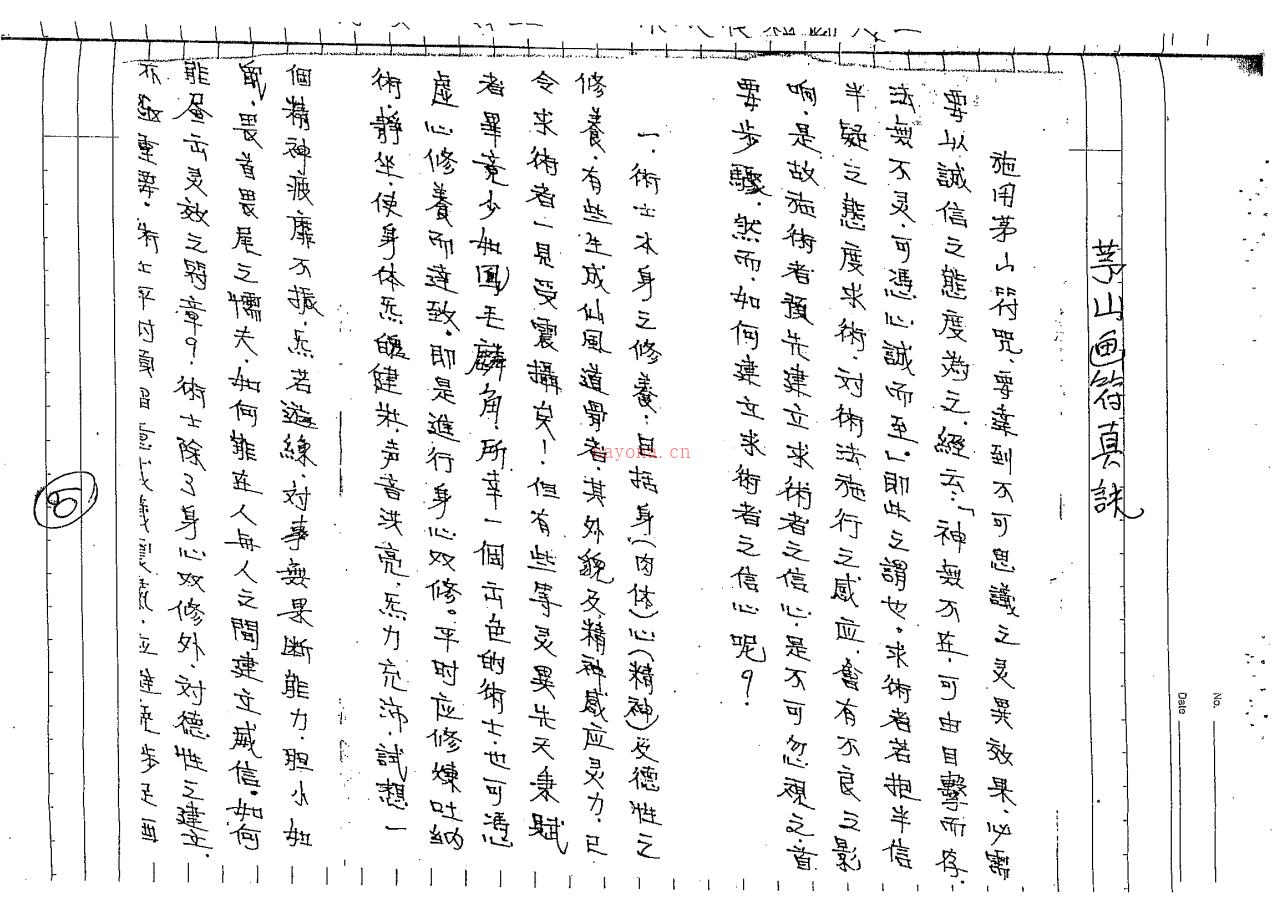 茅山画符真訣
施用茅山符咒，要達到不可思議之灵異效果，必需
要以誠信之態度為之，經云：「神無不在，可由目擊而存，
法無不灵，可憑心誠而至」即此之謂也。求術者若抱半信
半疑之態度求術，対術法施行之感应，會有不良之影
响，是故施術者預先建立求術者之信心，是不可忽視之首
要步驟，然而，如何建立求術者之信心呢？
一、術士本身之修養：包括身（肉体）心（精神）及德性之
修養，有些生成仙風道骨者，其外貌及精神感应灵力，已
令求術者一見受震攝矣！但有些等灵異先天秉賦
者畢竟少如鳳毛麟角，所幸一個出色的術士，也可憑
虛心修養而達致，即是進行身心双修。平时应修煉吐納
術，靜坐，使身体炁魄健壯，声音洪亮，炁力充沛，試想一
個精神疲靡不振，炁若遊線，対事無果断能力，胆小如
鼠，畏首畏尾之懦夫，如何能在人與人之間建立威信，如何
能畫出灵效之符章？術士除了身心双修外，対德性之建立，
亦極重要，術士平时須留意
8
No.
Date
nayona.cn